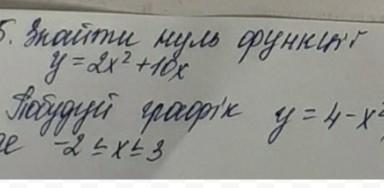 5. Знайти нуль функції
y = 2x² + 10x
Побудуй графік y = 4 - x²
-2 ≤ x ≤ 3